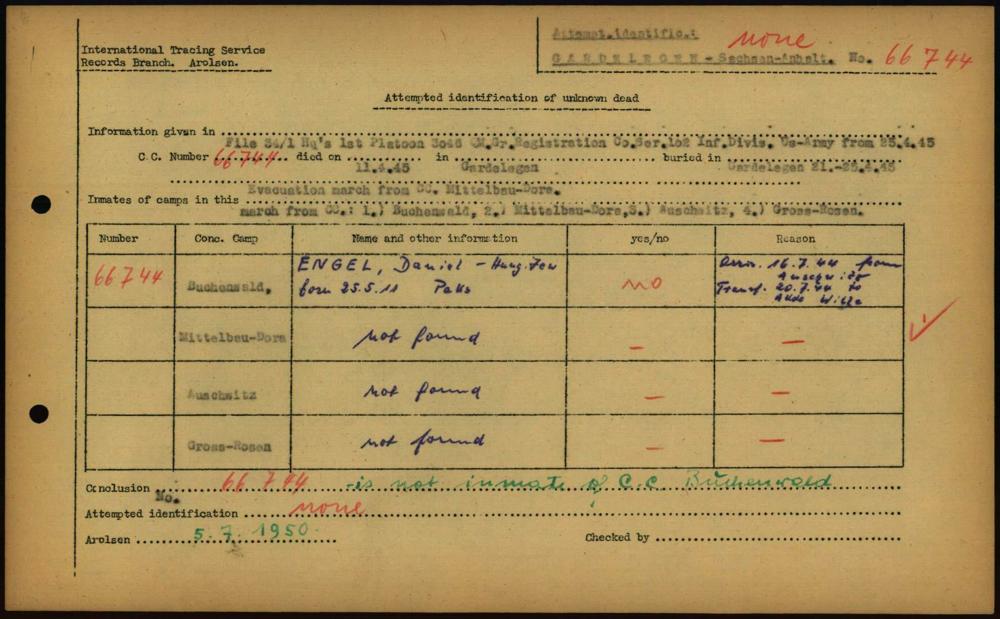 International Tracing Service
Records Branch. Arolsen.
Attempt.identific.: none
GARDELEGEN - Sachsen-Anhalt. No. 66744
Attempted identification of unknown dead
Information given in File 34/1 Hq's 1st Platoon 3046 QM.Gr.Registration Co.Ser.102 Inf.Divis. Us-Army from 25.4.45
C.C. Number 66744 died on 11.4.45 in Gardelegen buried in Gardelegen 21.-25.4.45
Evacuation march from CC. Mittelbau-Dora.
Inmates of camps in this march from CC.: 1.) Buchenwald, 2.) Mittelbau-Dora, 3.) Auschwitz, 4.) Gross-Rosen.
Number Conc. Camp Name and other information yes/no Reason
66744 Buchenwald, ENGEL, Daniel - Hung. Jew born 25.5.11 Paks no Arriv. 16.7.44 from Auschwitz Transf. 20.7.44 to Akdo Wille
Mittelbau-Dora not found — —
Auschwitz not found — —
Gross-Rosen not found — —
Conclusion No. 66744 - is not inmate of C.C. Buchenwald
Attempted identification none
Arolsen 5.7.1950.
Checked by